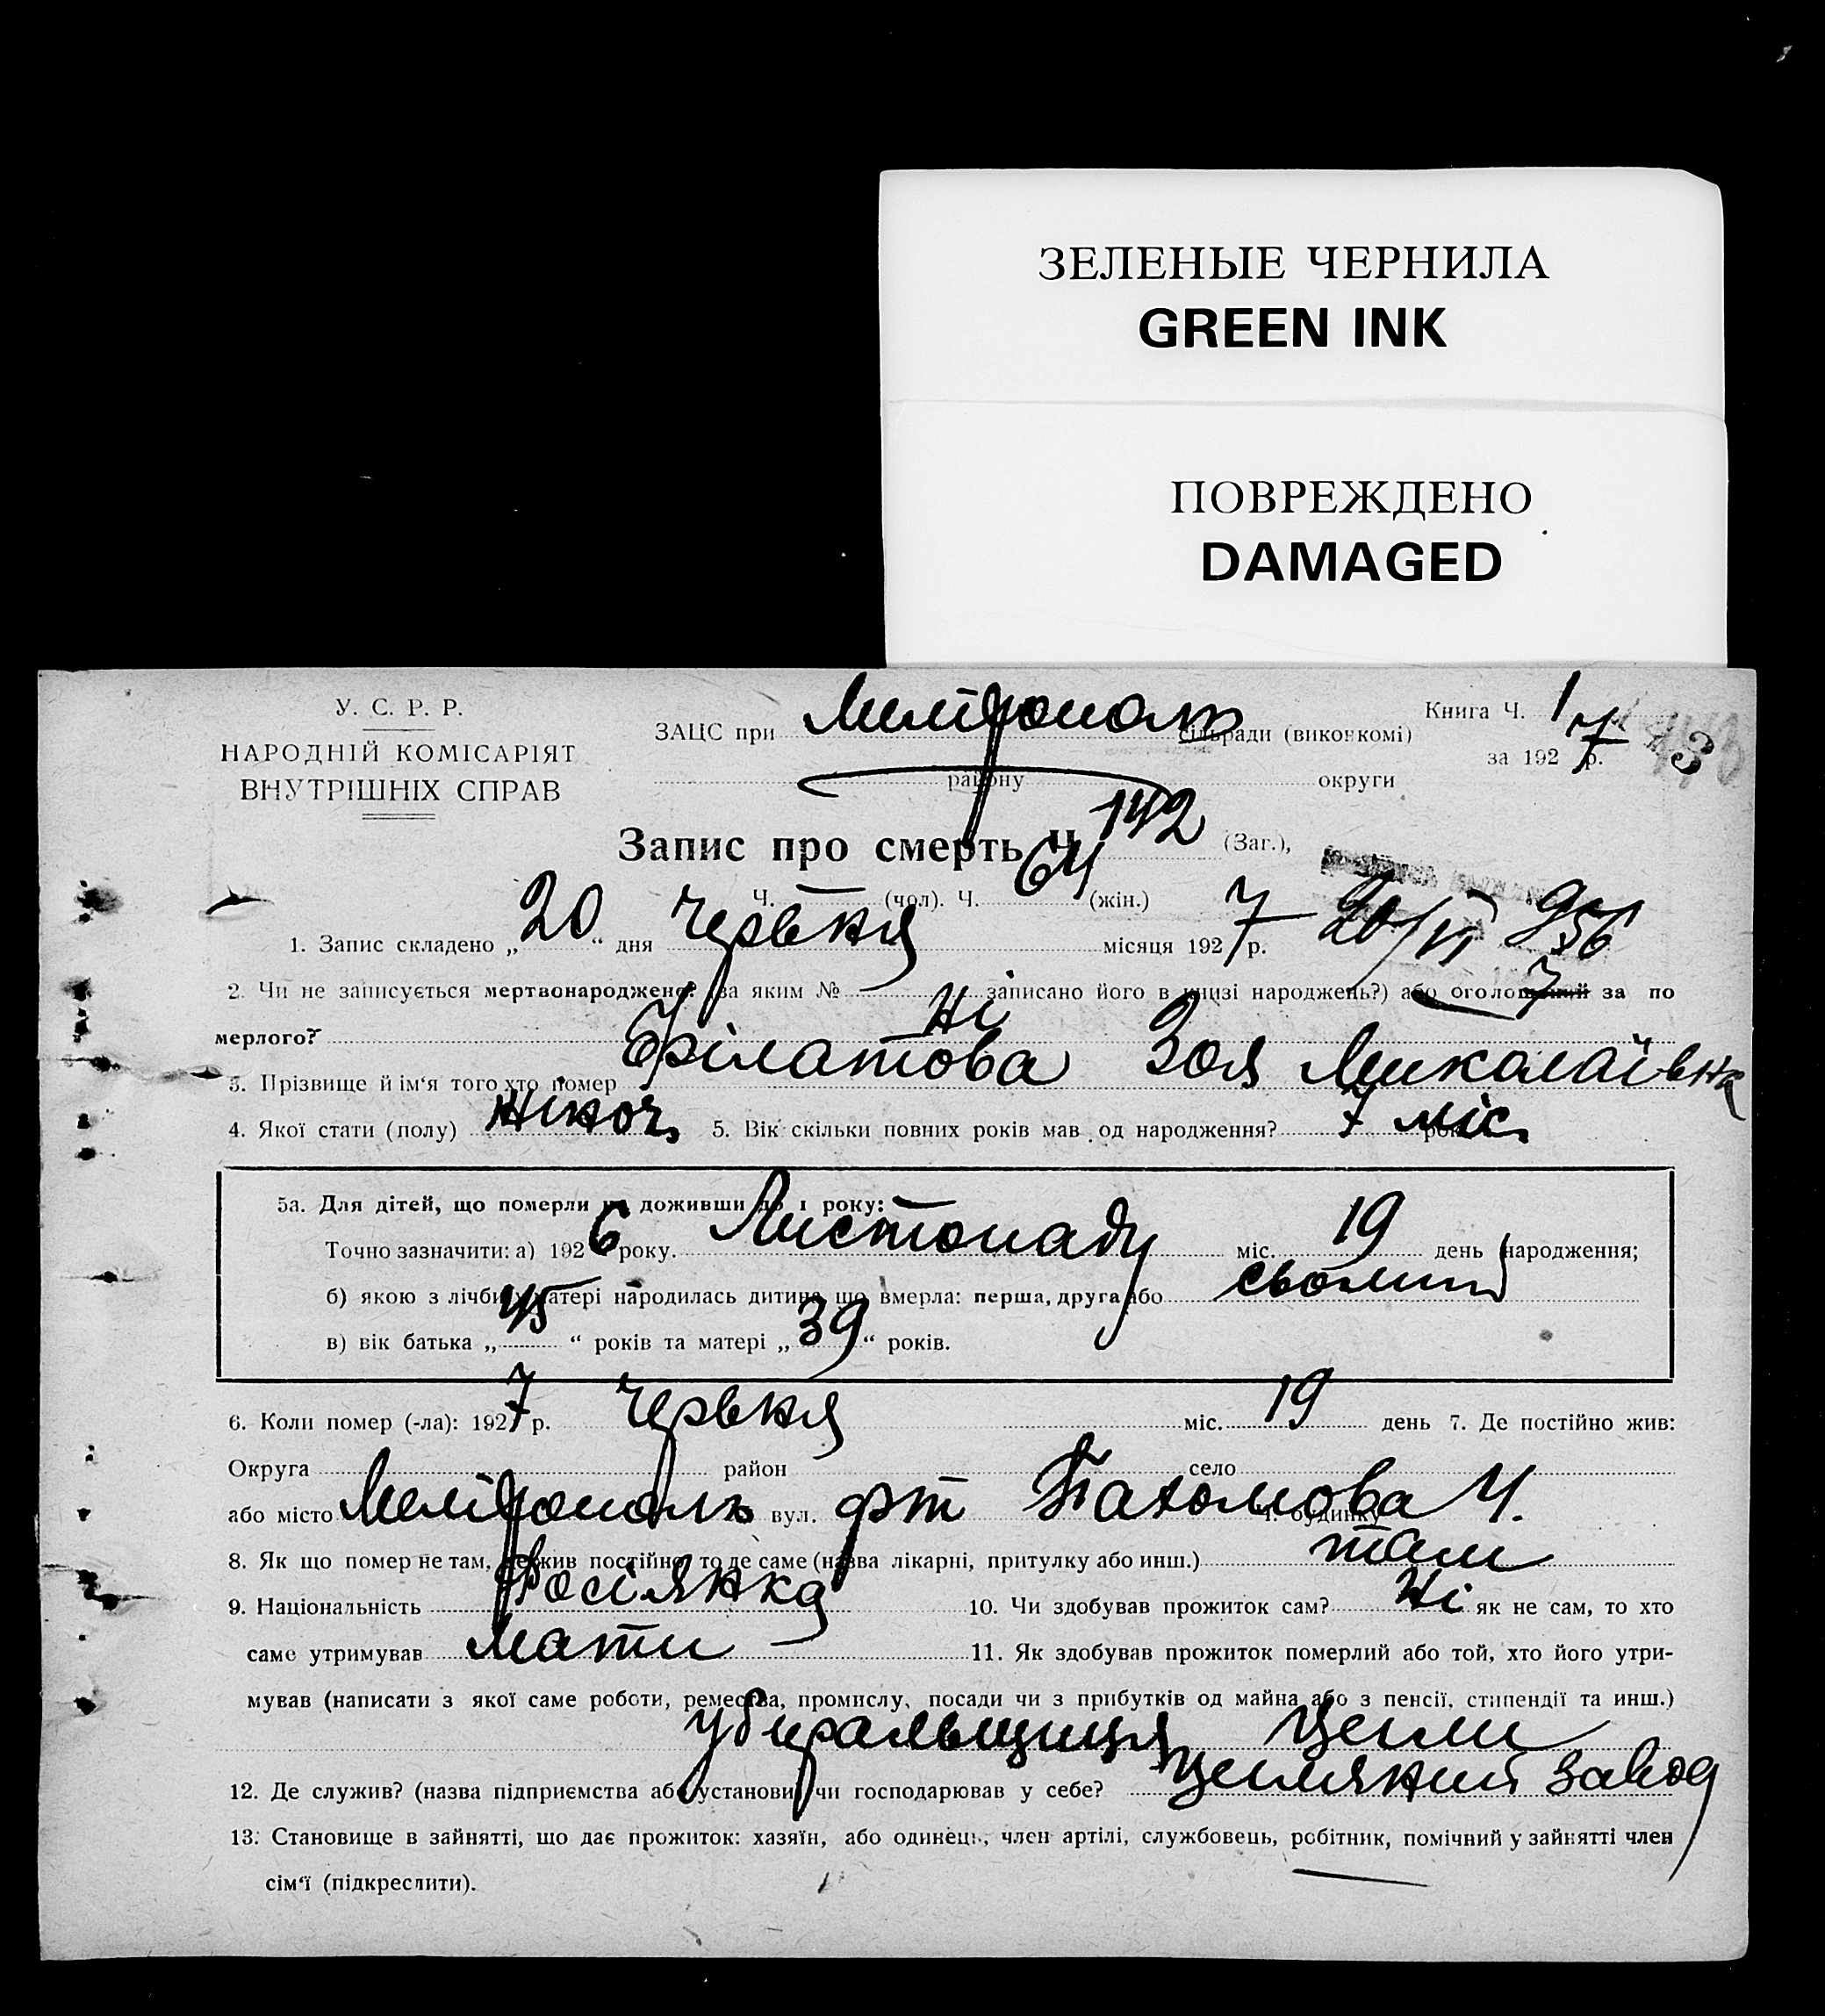 ЗЕЛЕНЫЕ ЧЕРНИЛА
GREEN INK
ПОВРЕЖДЕНО
DAMAGED
У. С. Р. Р.
НАРОДНІЙ КОМІСАРІЯТ
ВНУТРІШНІХ СПРАВ
ЗАЦС при Мелітрополь сільради (виконкомі)
району округи
Книга Ч. 1
за 1927 р.
Запис про смерть Ч. 142 (Заг.),
Ч. — (чол). Ч. 64 (жін.)
1. Запис складено „20“ дня червня місяця 1927 р. 20/VI 956
7
2. Чи не записується мертвонароджене? (за яким № записано його в книзі народжень?) або оголошений за по
мерлого? Ні
3. Прізвище й ім‘я того хто помер Філатова Зоя Миколаївна
4. Якої стати (полу) жіноч. 5. Вік скільки повних років мав од народження? 7 міс. рок
5а. Для дітей, що померли не доживши до 1 року:
Точно зазначити: а) 1926 року. Листопаду міс. 19 день народження;
б) якою з лічби у матері народилась дитина що вмерла: перша, друга або
в) вік батька „45“ років та матері „39“ років.
6. Коли помер (-ла): 1927 р. червня міс. 19 день 7. Де постійно жив:
Округа район село
або місто Мелітрополь вул. фт Пахомова Ч. будинку
8. Як що помер не там, де жив постійно, то де саме (назва лікарні, притулку або инш.) там
9. Національність Росіянка 10. Чи здобував прожиток сам? Ні як не сам, то хто
саме утримував мати 11. Як здобував прожиток померлий або той, хто його утри-
мував (написати з якої саме роботи, ремества, промислу, посади чи з прибутків од майна або з пенсії, стипендії та инш.)
убиральщиця цегли
12. Де служив? (назва підприємства або установи) чи господарював у себе? завод
13. Становище в зайнятті, що дає прожиток: хазяїн, або одинець, член артілі, службовець, робітник, помічний у зайнятті член
сім‘ї (підкреслити).